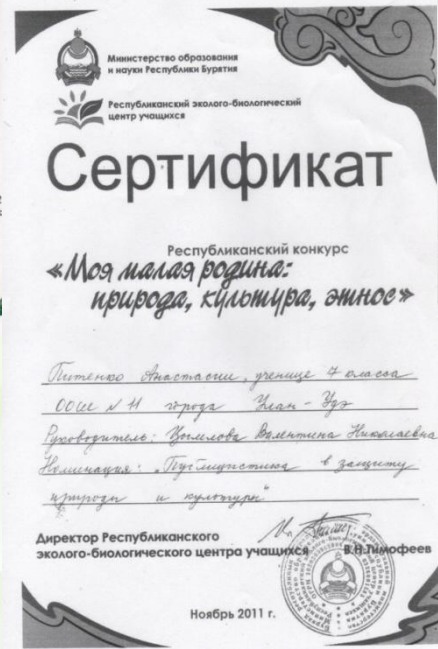 Министерство образования
и науки Республики Бурятия
Республиканский эколого-биологический
центр учащихся
Сертификат
Республиканский конкурс
«Моя малая родина:
природа, культура, этнос»
Питенко Анастасии, ученице 7 класса
ООШ № 11 города Улан-Удэ
Руководитель: Валентина Николаевна
Номинация: „Публицистика в защиту
природы и культуры"
Директор Республиканского
эколого-биологического центра учащихся В.Н.Тимофеев
Ноябрь 2011 г.